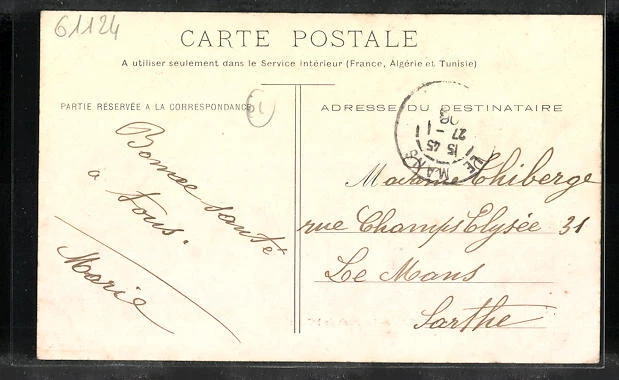 61124
CARTE POSTALE
A utiliser seulement dans le Service intérieur (France, Algérie et Tunisie)
PARTIE RÉSERVÉE A LA CORRESPONDANCE
61
ADRESSE DU DESTINATAIRE
LE MANS
15 45
27 - 1
08
Bonne santé
à tous.
Marie
Madame Thiberge
rue Champs Elysée 31
Le Mans
Sarthe